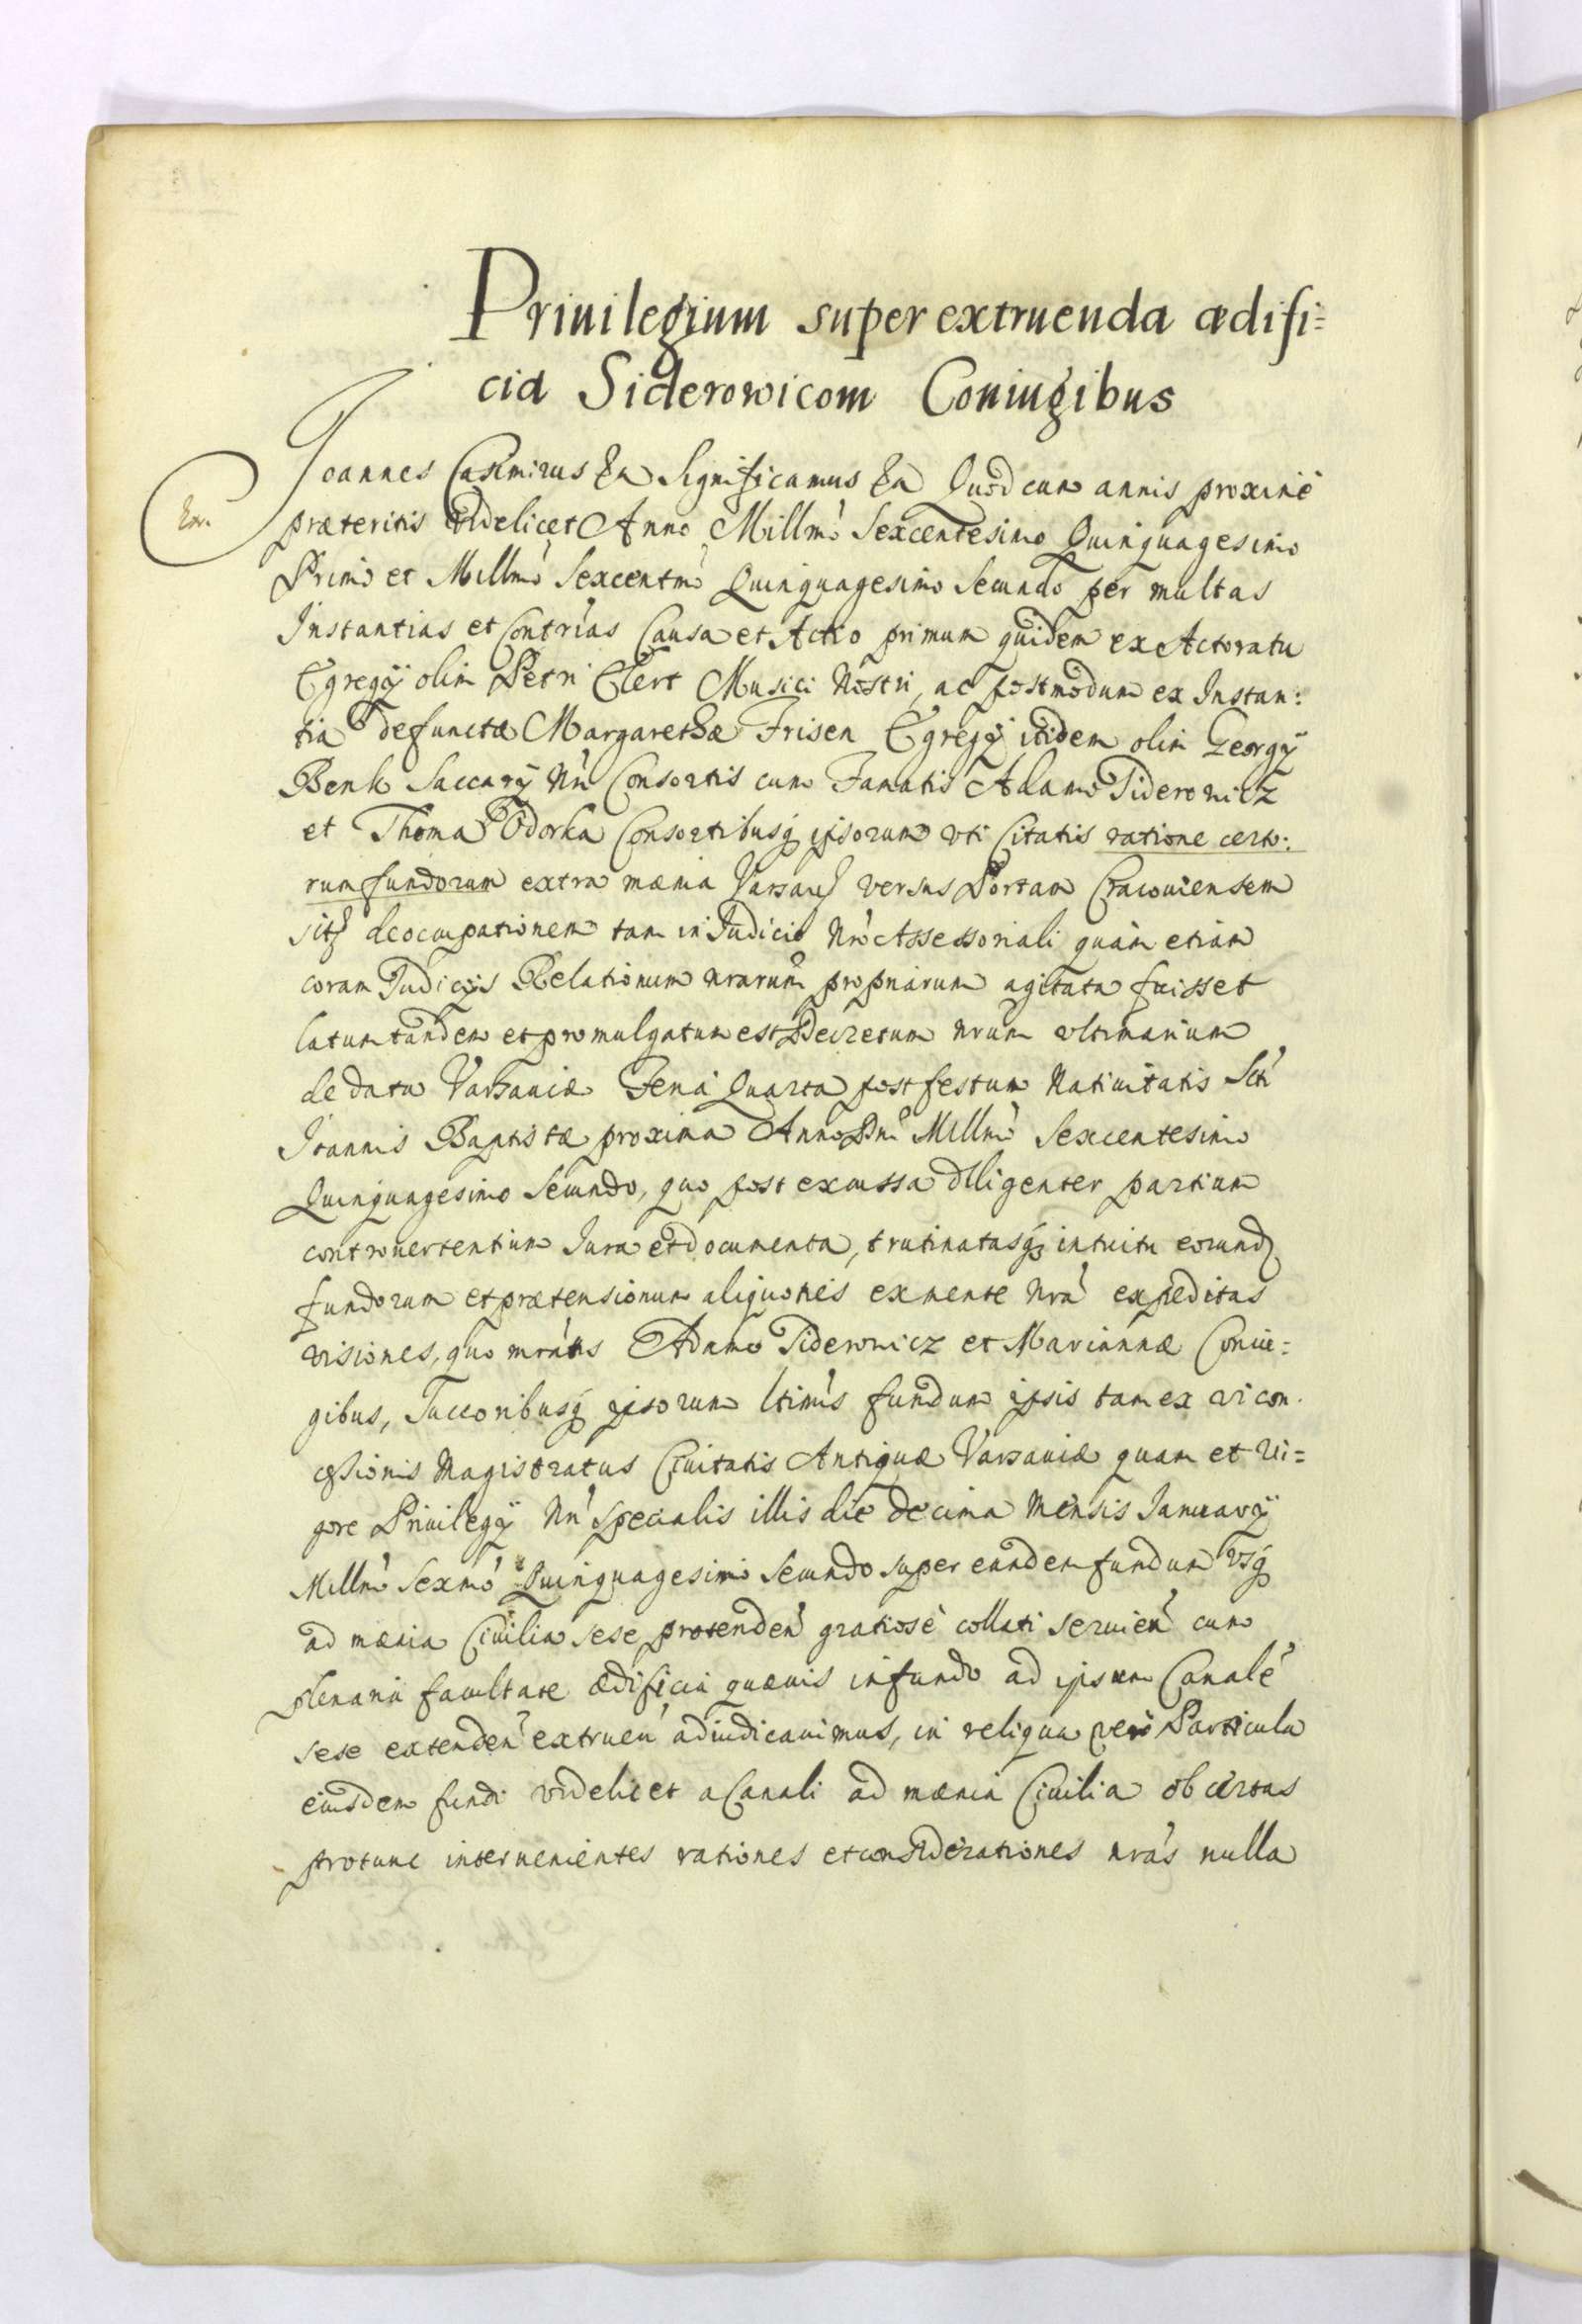 Priuilegium super extruenda ædifi=
cia Siderowicom Coniugibus
Joannes Casimirus Ea Significamus Ea Quod cum annis proximè
præteritis videlicet Anno Millmo Sexcentesimo Quinquagesimo
Primo et Millmo Sexcentmo Quinquagesimo Secundo per multas
Instantias et Contrias Causa et Actio primum quidem ex Actoratu
Egregÿ olim Petri Elert Musici Nostri, ac postmodum ex Instan:
tia defunctæ Margarethæ Frisen Egregÿ itidem olim Georgÿ
Benk Saccarÿ Nri Consortis cum Famatis Adamo Siderowicz
et Thoma Odorka Consortibusq ipsorum vti Citatis ratione certo:
rum fundorum extra mænia Varsau versus Portam Cracouiensem
sit deoccupationem tam in Judicio Nro Assessoriali quàm etiam
coram Judicÿs Relationum nrarum propriarum agitata fuisset
latum tandem et promulgatum est Decretum nrum vltimarium
de data Varsauiæ Feria Quarta post festum Natiuitatis Scti
Joannis Baptistæ proxima Anno Dni Millmo Sexcentesimo
Quinquagesimo Secundo, quo post excussa diligenter partium
controuertentium Jura et documenta, trutinatasq intuitu eorund
fundorum et prætensionum aliquoties ex mente nra expeditas
visiones, quo mratis Adamo Siderowicz et Mariannæ Coniu=
gibus, Succoribusq ipsorum ltimis fundum ipsis tam ex vi con
cessionis Magistratus Ciuitatis Antiquæ Varsauiæ quam et vi=
gore Priuilegÿ Nri specialis illis die decima Mensis Januarÿ
Millmo Sexmo Quinquagesimo Secundo super eundem fundum vsq
ad mænia Ciuilia sese protenden gratiosè collati seruien cum
plenaria facultate ædificia quæuis in fundo ad ipsum Canale
sese extenden extruen adiudicauimus, in reliqua vero Particula
eiusdem fundi videlicet a Canali ad mænia Ciuilia ob certas
protunc interuenientes rationes et considerationes nras nulla